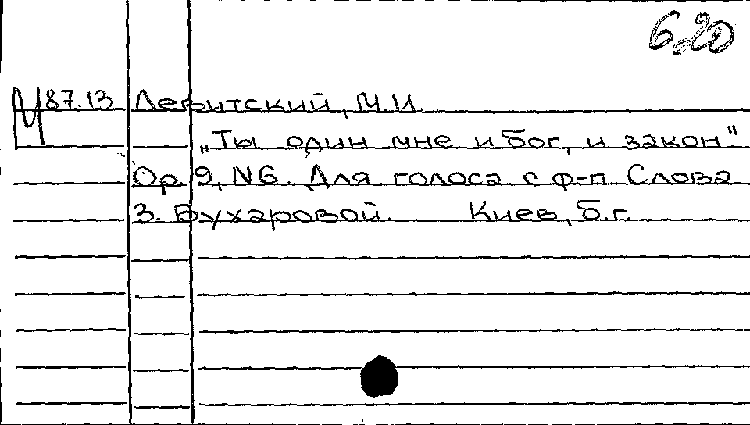 620
М 87.13 Левитский, М.И.
„Ты один мне и бог, и закон"
Op. 9, N6. Для голоса с ф-п Слова
З. Бухаровой. Киев, б.г.